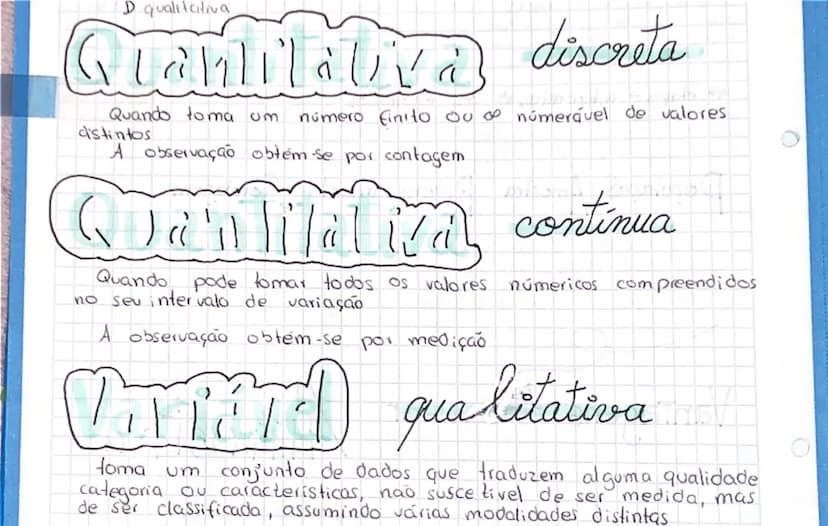 D qualitativa
Quantitativa discreta
Quando toma um número finito ou ∞ númerável de valores
distintos
A observação obtém-se por contagem
Quantitativa contínua
Quando pode tomar todos os valores númericos compreendidos
no seu intervalo de variação
A observação obtém-se por medição
Variável qualitativa
toma um conjunto de dados que traduzem alguma qualidade
categoria ou características, não suscetível de ser medida, mas
de ser classificada, assumindo várias modalidades distintas